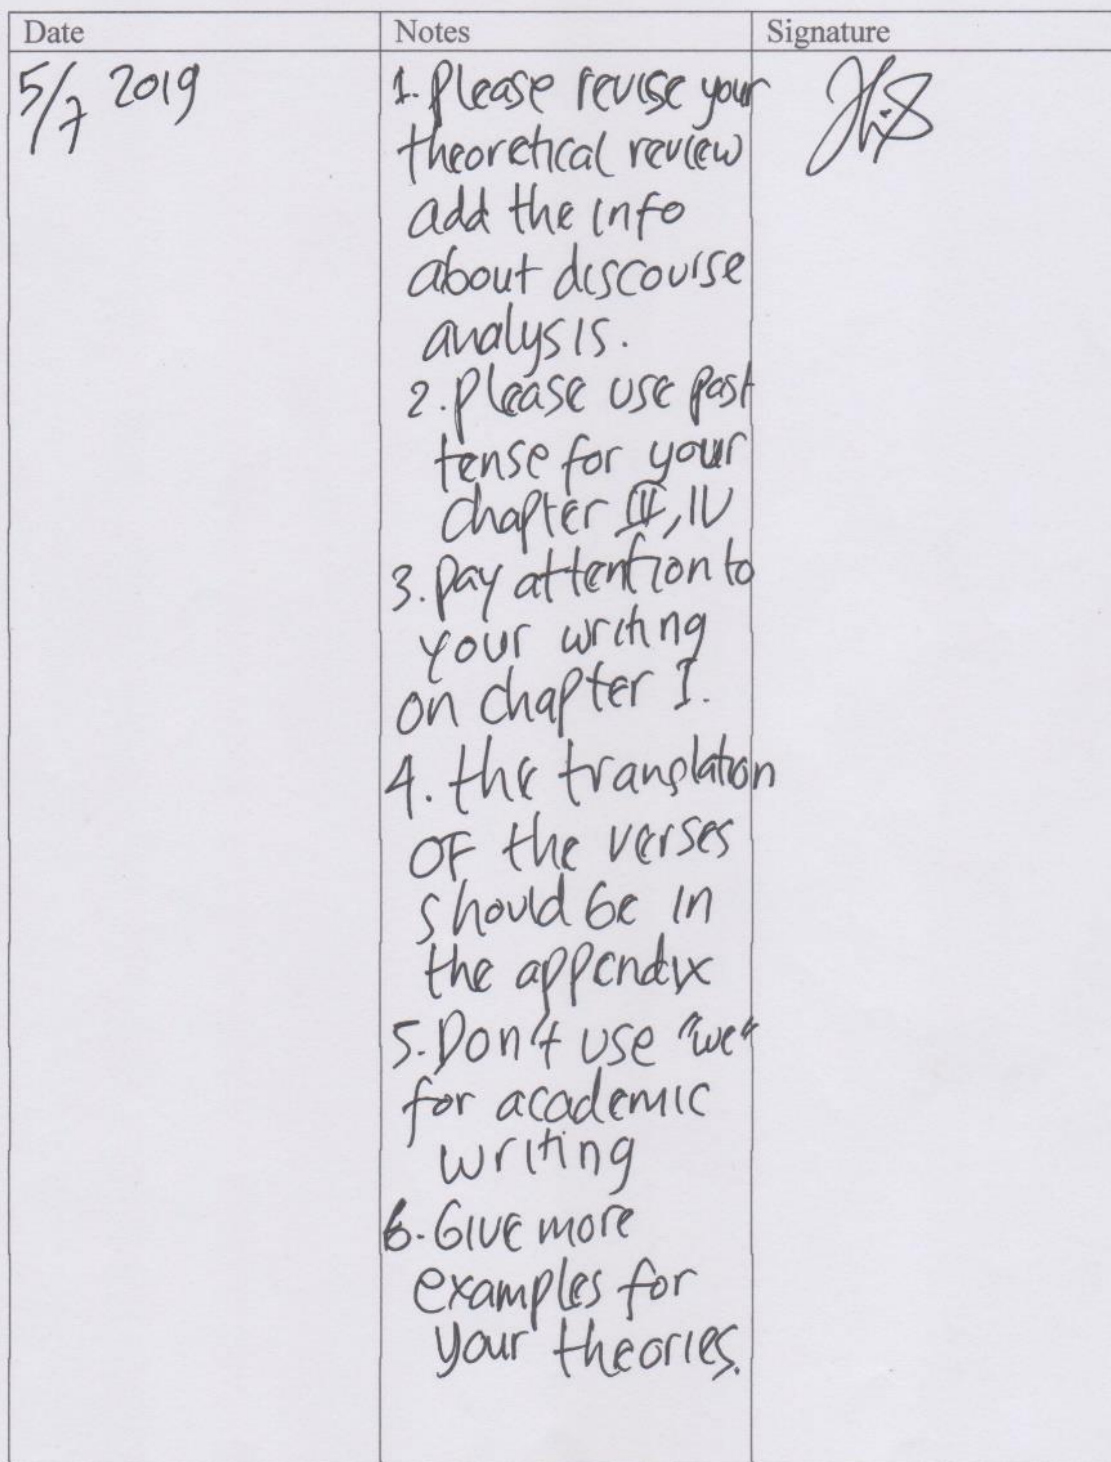 Date Notes Signature
5/7 2019
1. Please revise your
theoretical review
add the info
about discourse
analysis.
2. Please use past
tense for your
chapter III, IV
3. Pay attention to
your writing
on chapter I.
4. the translation
OF the verses
should be in
the appendix
5. Don't use "we"
for academic
writing
6. Give more
examples for
your theories.